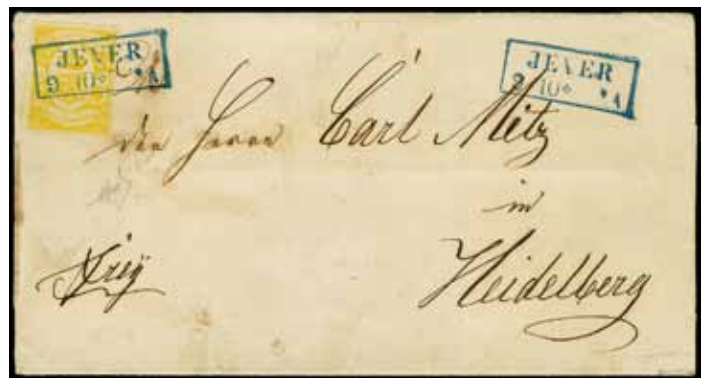 JEVER
9 10* *A
JEVER
9 10* *A
den Herrn Carl Metz
in
Heidelberg
frey